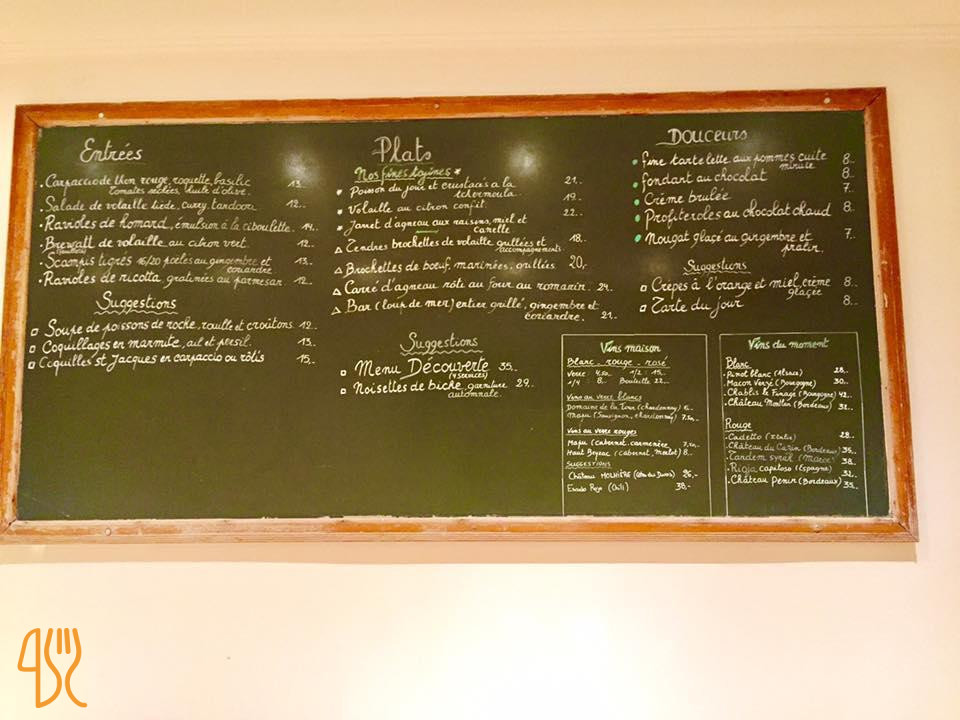 Entrées
. Carpaccio de thon rouge, roquette, basilic
tomates séchées, huile d'olive. 13..
. Salade de volaille tiède, curry, tandoori 12..
. Ravioles de homard, émulsion à la ciboulette. 14..
. Brewatt de volaille au citron vert. 12..
. Scampis tigrés 16/20 poêlés au gingembre et
coriandre 13..
. Ravioles de ricotta, gratinées au parmesan. 12..
Suggestions
Soupe de poissons de roche, rouille et croûtons. 12..
Coquillages en marmite, ail et persil. 13..
Coquilles st Jacques en carpaccio ou rôtis 15..
Plats
Nos fines tagines
Poisson du jour et crustacés a la
tchermoula. 21..
Volaille au citron confit. 19..
Jarret d'agneau aux raisins, miel et
canelle 22..
Tendres brochettes de volaille grillées et
accompagnements. 18..
Brochettes de bœuf, marinées, grillées. 20,-
Carré d'agneau rôti au four au romarin. 24..
Bar (loup de mer) entier grillé, gingembre et
coriandre. 21..
Suggestions
Menu Découverte 35..
(4 services)
Noisettes de biche, garniture
automnale. 29..
Douceurs
fine tartelette aux pommes cuite
minute 8..
fondant au chocolat 8..
Crème brulée 7..
Profiteroles au chocolat chaud 8..
Nougat glacé au gingembre et
pralin. 7..
Suggestions
Crêpes à l'orange et miel, crème
glaçée 8..
Tarte du jour 8..
Vins maison
Blanc - rouge - rosé
Verre : 4,50 1/2 : 15..
1/4 : 8.. Bouteille 22..
Vins au verre blancs
Domaine de la Tour (chardonnay) 6..
Mapu (Sauvignon, chardonnay) 7,50..
Vins au verre rouges
Mapu (cabernet-carmenère 7,50..
Haut Beyzac (cabernet, Merlot) 8..
SUGGESTIONS
Château MOLHIÈRE (Côtes des Duras) 26,-
Escudo Rojo (Chili) 38,-
Vins du moment
Blanc
. Pinot blanc (Alsace) 28..
. Macon Verzé (Bourgogne) 30..
. Chablis G Finage (Bourgogne) 42..
. Château Montlin (Bordeaux) 31..
Rouge
. Cadetto (Italie) 28..
. Château du Cazin (Bordeaux) 35..
. Tandem syrah (Maroc) 38..
. Rioja capiloso (Espagne) 32..
. Château Penin (Bordeaux) 35..